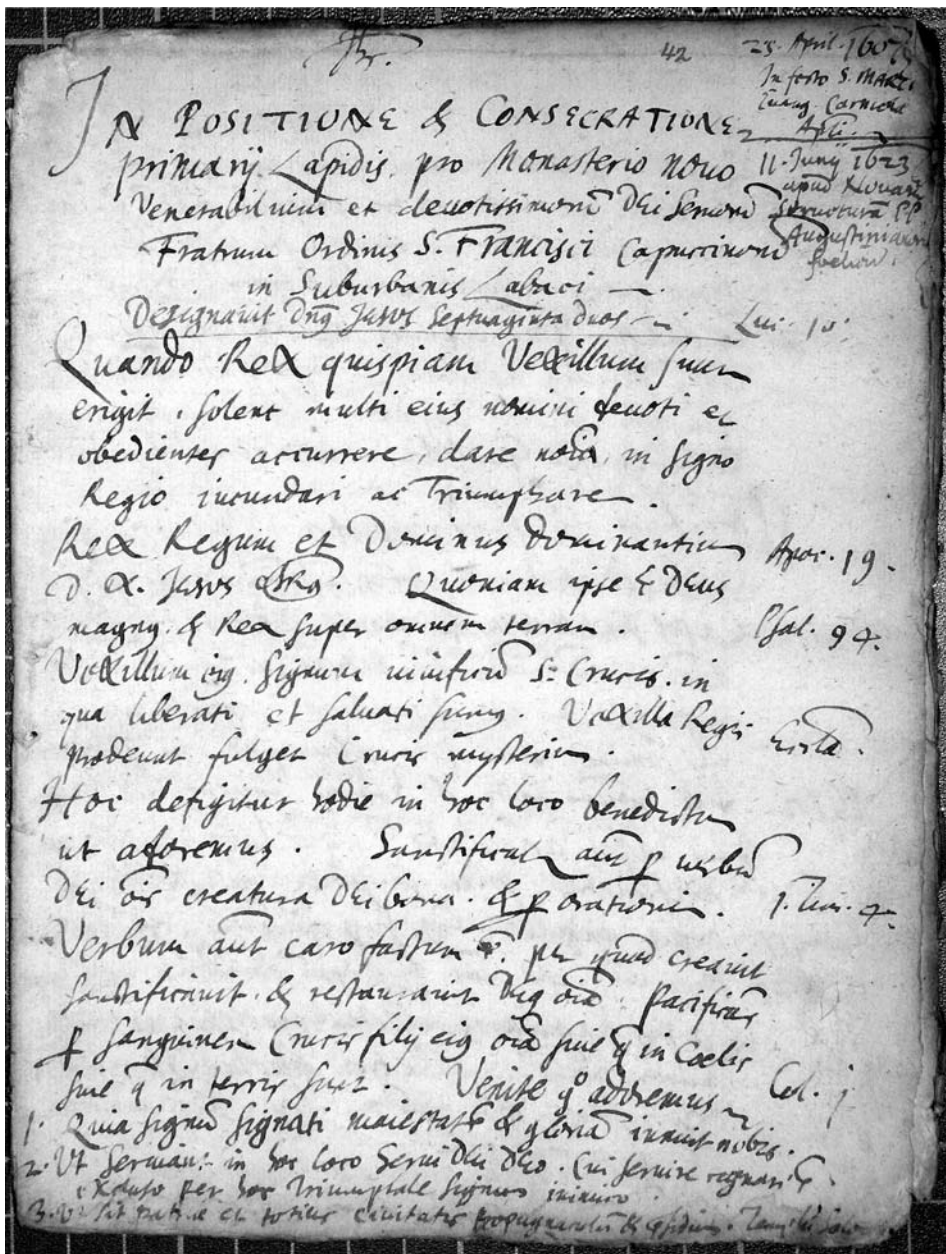 42
25. April. 1607
In festo S. MARCI
IN POSITIONE & CONSECRATIONE
primarij Lapidis pro Monasterio novo
11. Junij 1623
Venerabilium et devotissimorū DEi servorū
structurā PP.
Augustinianorū
Fratrum Ordinis S. Francisci Capuccinorū
in Suburbanis Labaci
Designavit Dn̄s Jesus Septuaginta duos
Luc. 10
Quando Rex quispiam Vexillum suum
erigit, solent multi eius nomini devoti et
obedientes accurrere, dare noīa, in signo
Regio iucundari ac Triumphare.
Rex Regum et Dominus dominantiū
Apoc. 19.
D. N. Jesus Quoniam ipse Deus
magnus & Rex super omnem terram.
Psal. 94.
Vexillum eius signum vivificū S: Crucis. in
qua liberati et salvati sumus. Vexilla Regis
prodeunt fulget Crucis mysterium.
Hoc defigitur hodie in hoc loco benedicto
ut adoremus. Sanctificat autē p verbū
DEi oīs creatura DEi bona. & p orationem.
1. Tim. 4.
Verbum aūt caro factum ē. per quod creavit
sanctificavit & restauravit oīa. Pacificās
p sanguinem Crucis filij eius oīa sive q in Coelis
sive q in terris sunt. Venite adoremus
Col. j
1. Quia signū signati maiestatē & gloriā innuit nobis.
2. Ut serviant in hoc loco servi DEi DEO. Cui servire regnare ē.
per hoc Triumphale signum
3. Ut sit patriae et totius civitatis propugnaculū & p̄sidium.